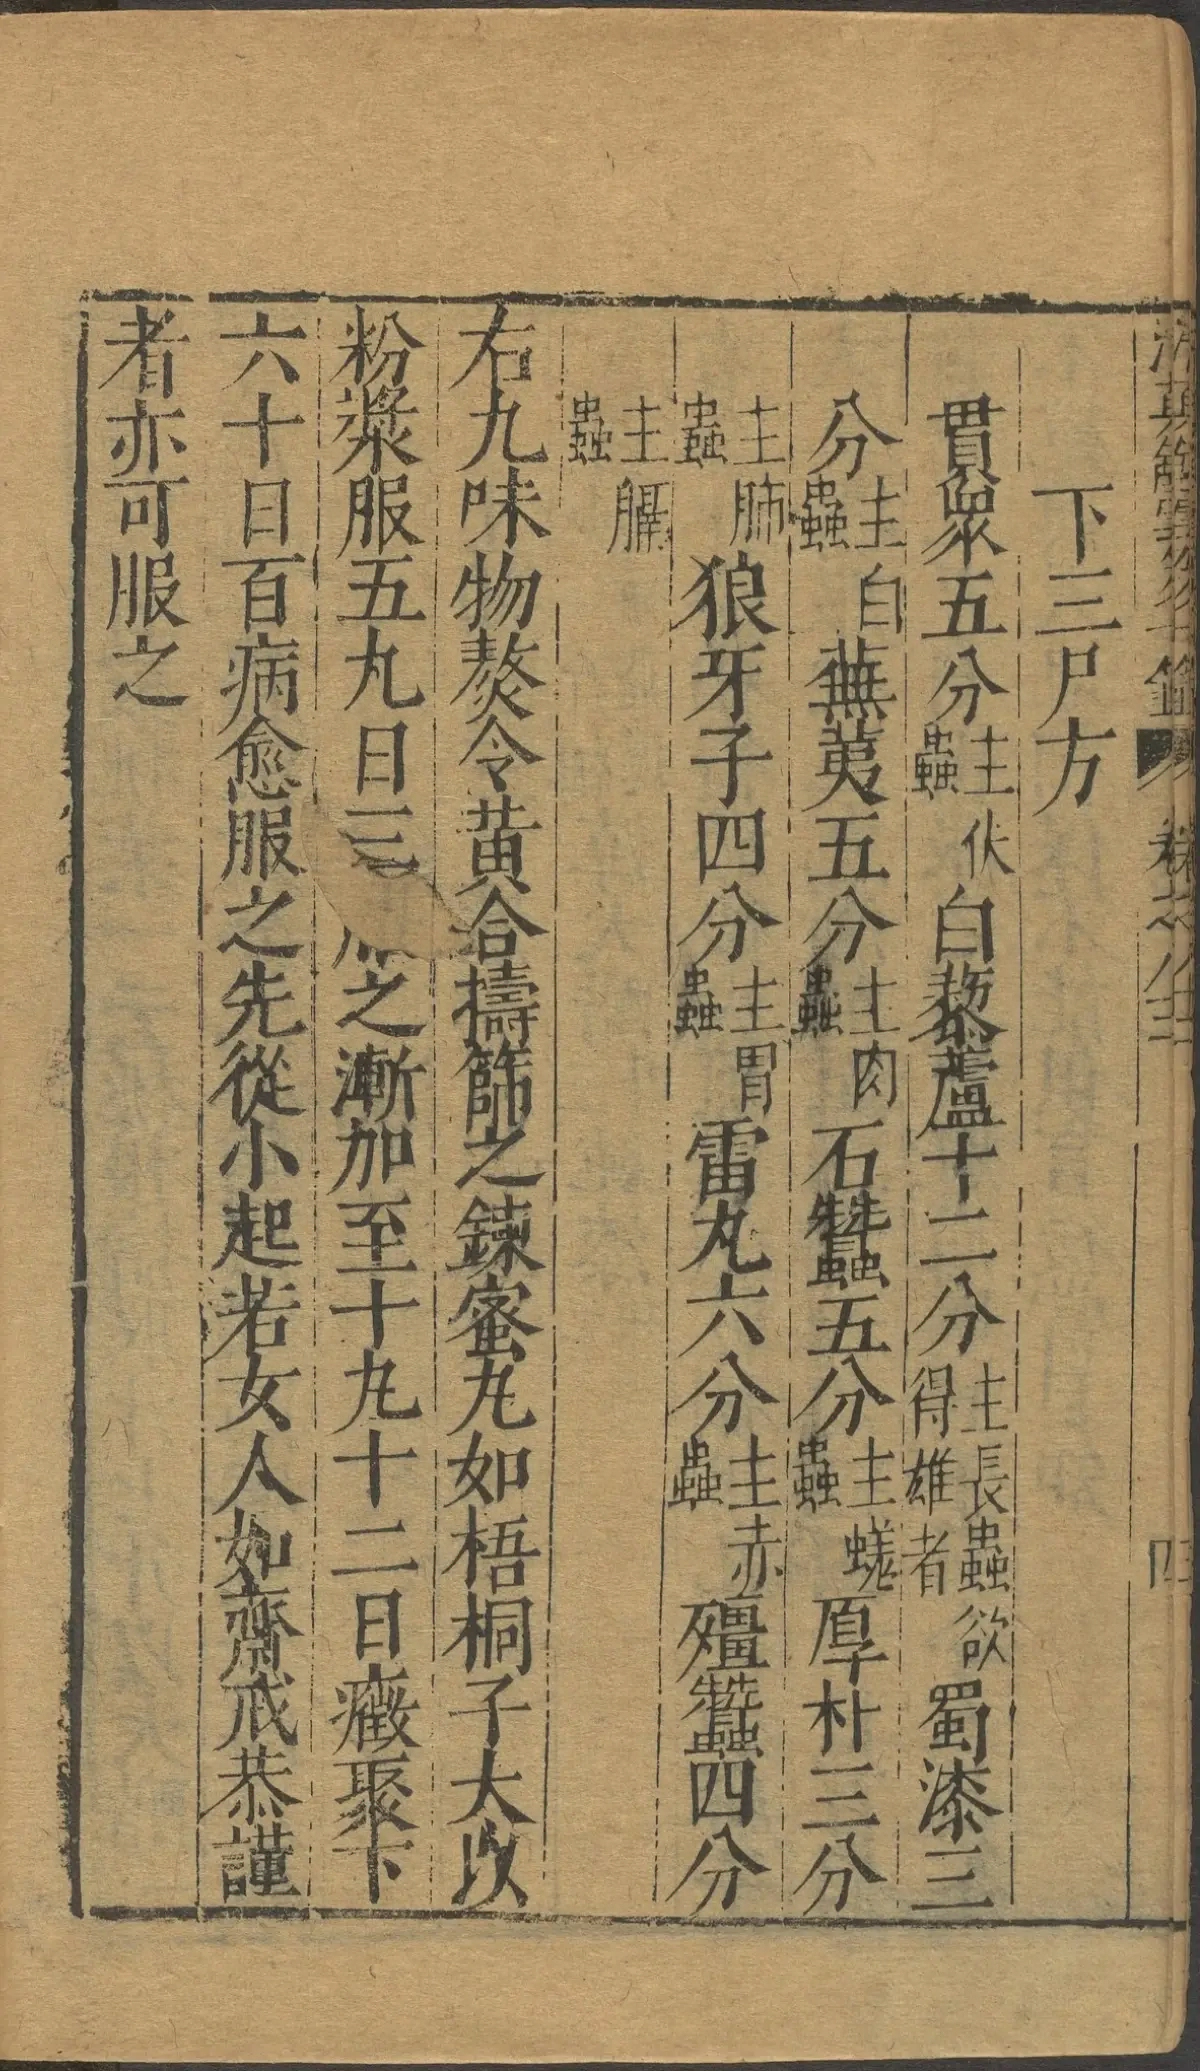 雲笈七籤 卷之八十二 四
下三尸方
貫衆五分主伏蟲白藜蘆十二分主長蟲欲得雄者蜀漆三
分主白蟲蕪荑五分主肉蟲石蠶五分主蟯蟲厚朴三分
主肺蟲狼牙子四分主胃蟲雷丸六分主赤蟲殭蠶四分
主膈蟲
右九味物熬令黃合擣篩之鍊蜜丸如梧桐子大以
粉漿服五丸日三之漸加至十丸十二日癥聚下
六十日百病愈服之先從小起若女人如齋戒恭謹
者亦可服之